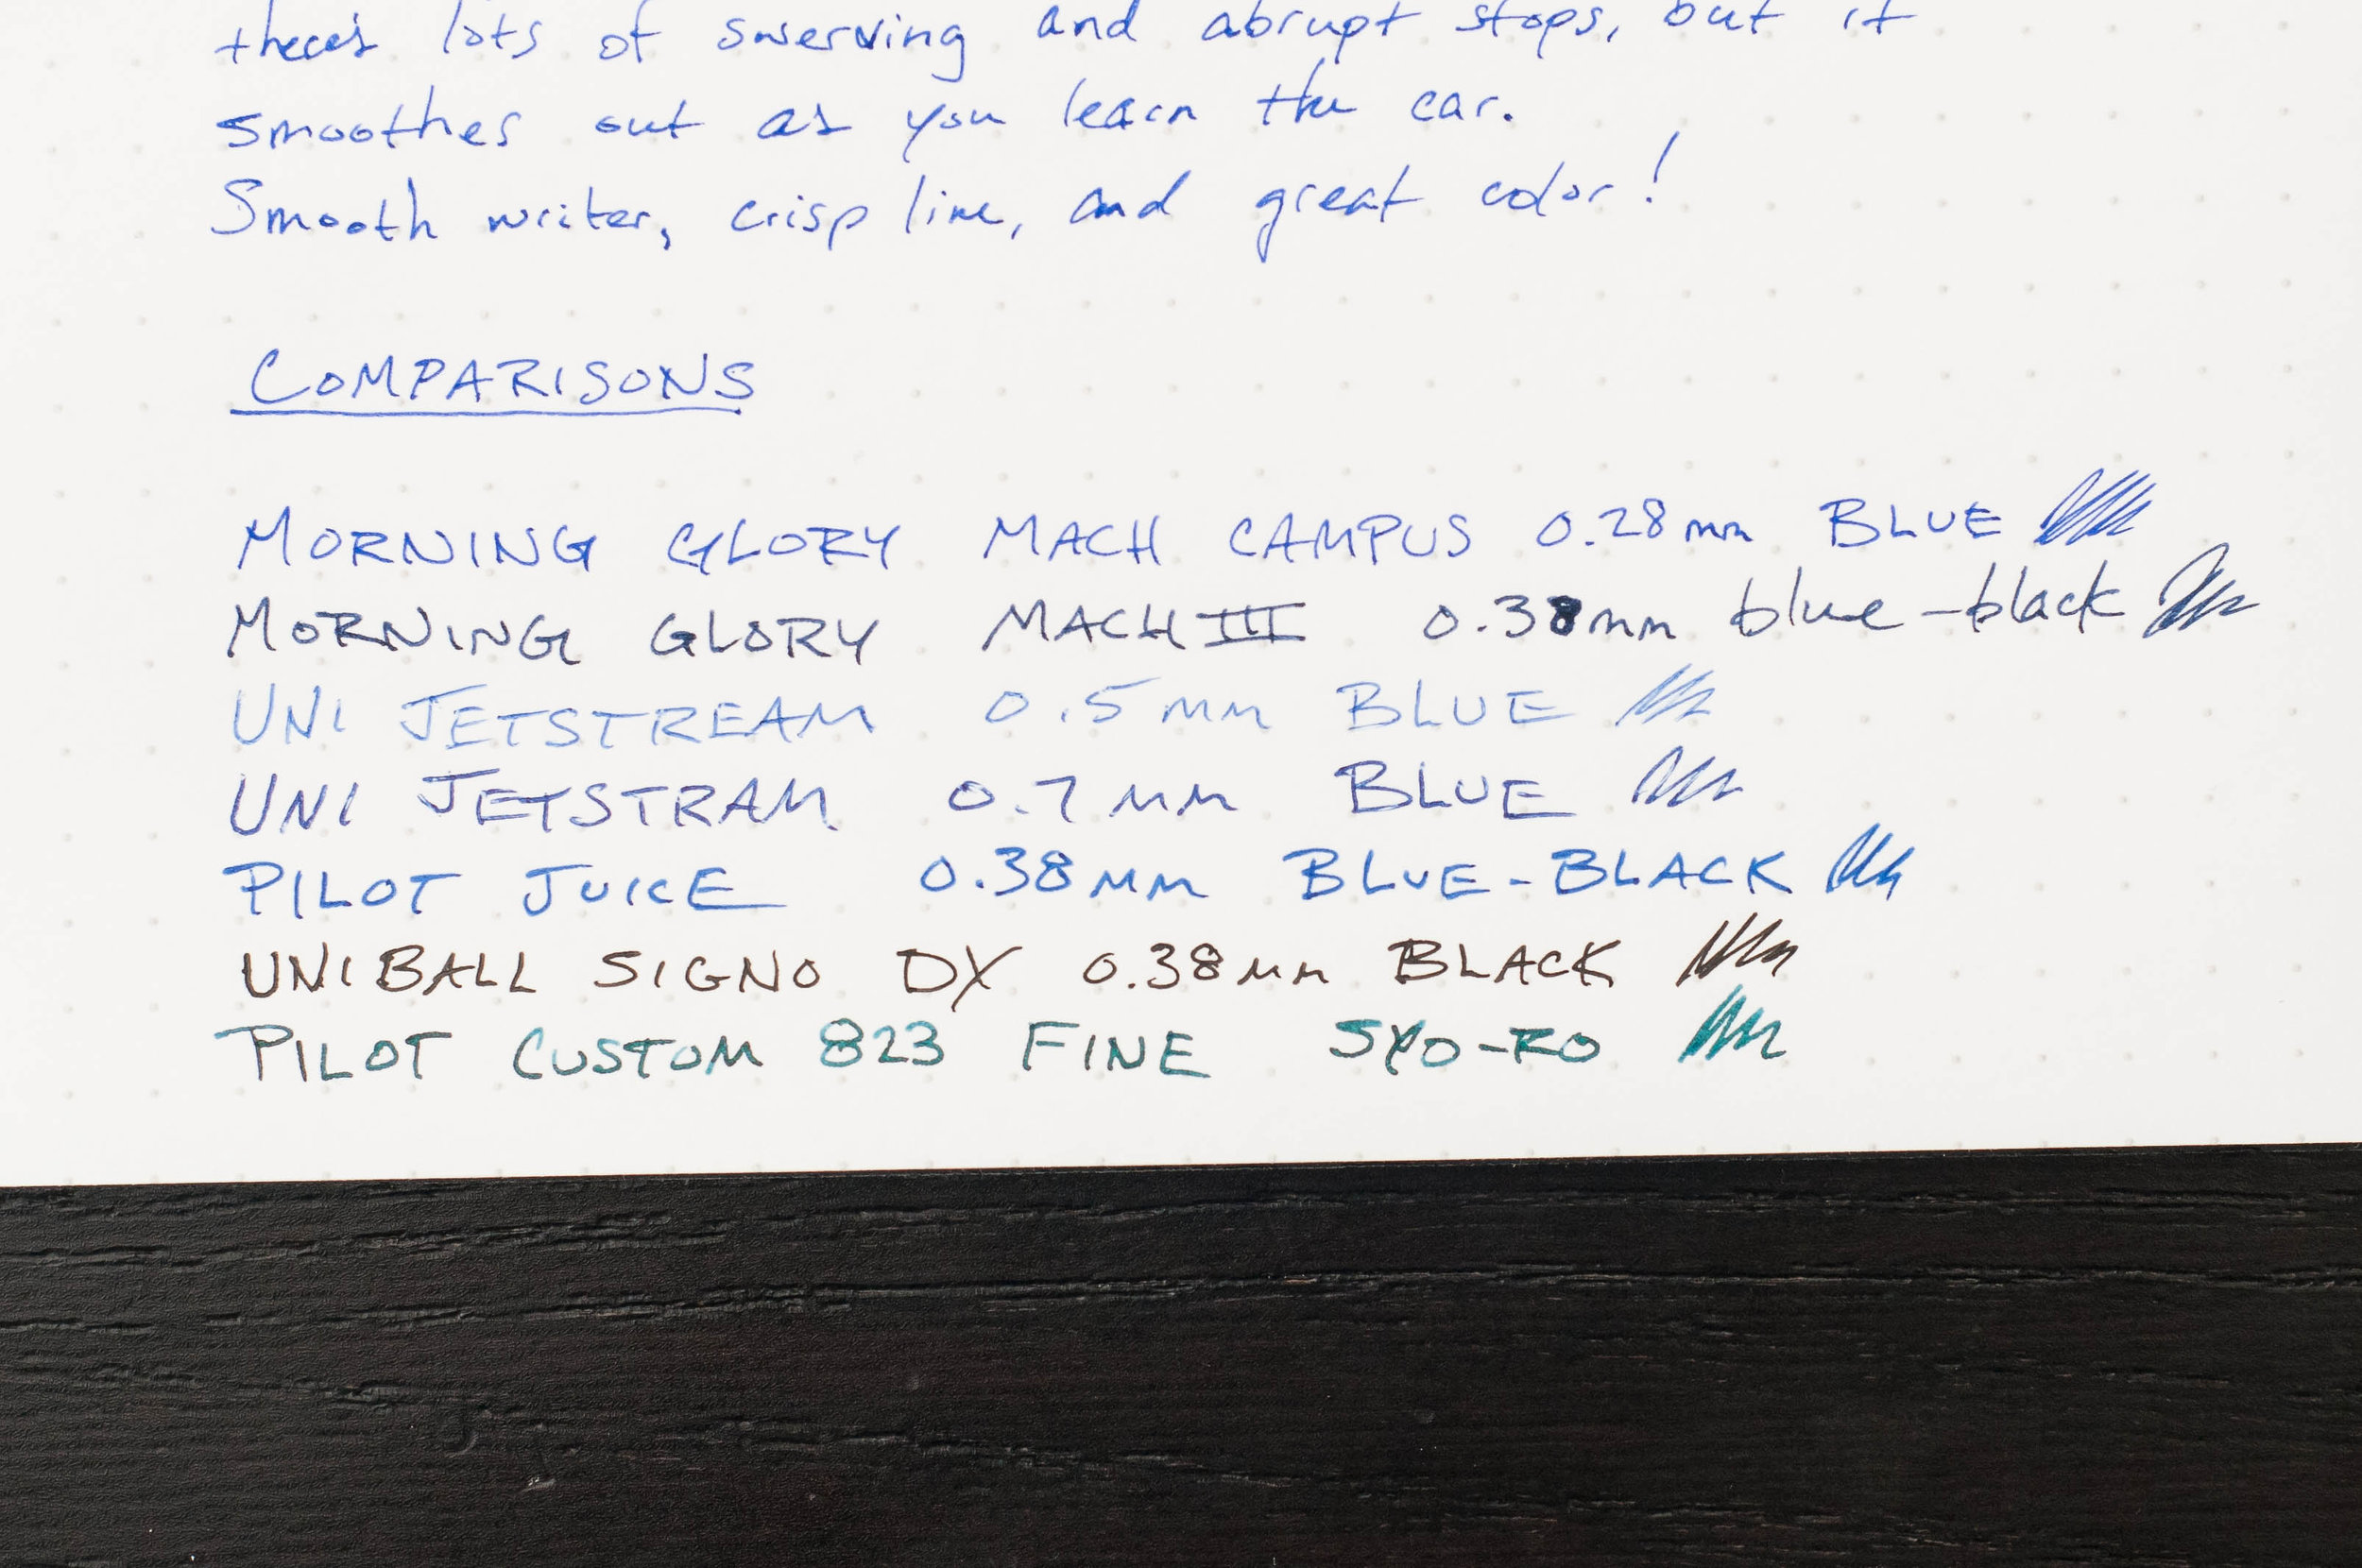 there's lots of swerving and abrupt stops, but it
smoothes out as you learn the car.
Smooth writer, crisp line, and great color!
COMPARISONS
MORNING GLORY MACH CAMPUS 0.28mm BLUE
MORNING GLORY MACH III 0.38mm blue-black
UNI JETSTREAM 0.5mm BLUE
UNI JETSTRAM 0.7mm BLUE
PILOT JUICE 0.38mm BLUE-BLACK
UNIBALL SIGNO DX 0.38mm BLACK
PILOT CUSTOM 823 FINE SYO-RO